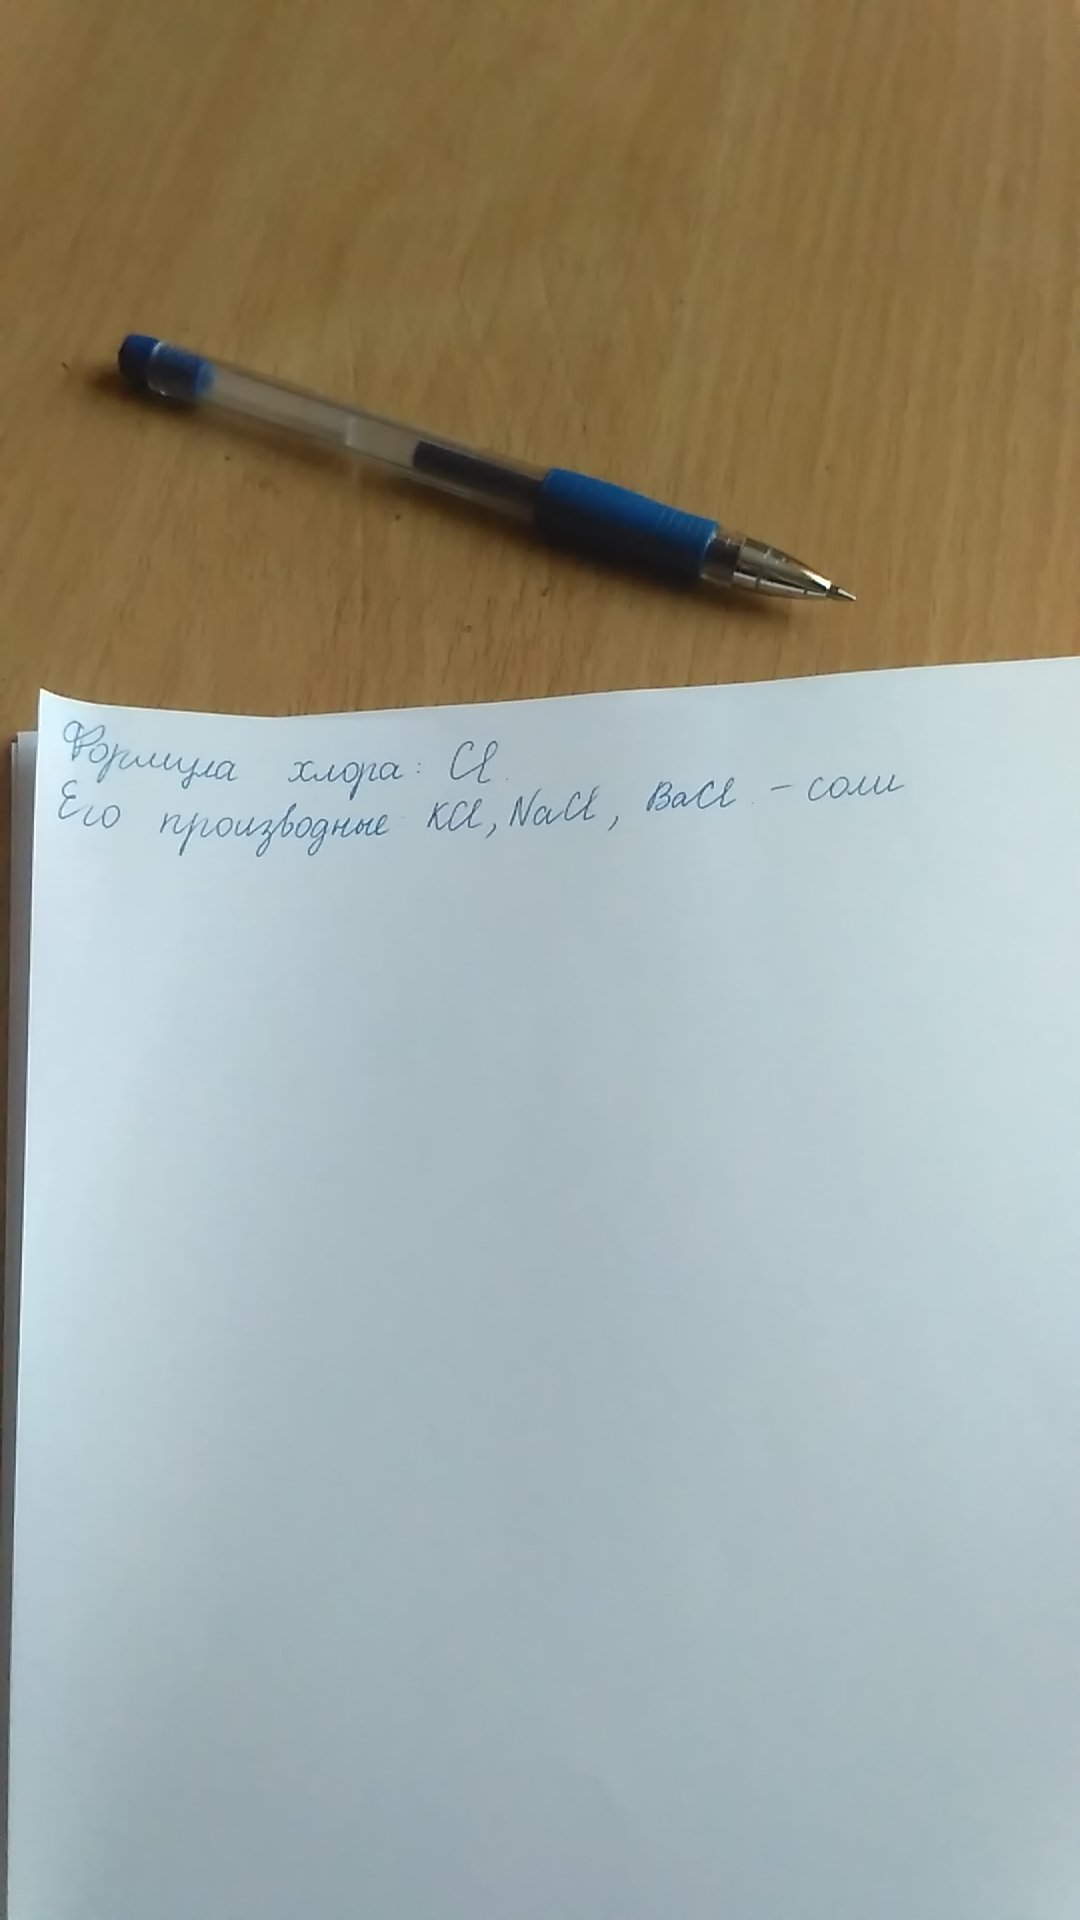 Формула хлора: Cl.
Его производные KCl, NaCl, BaCl - соли